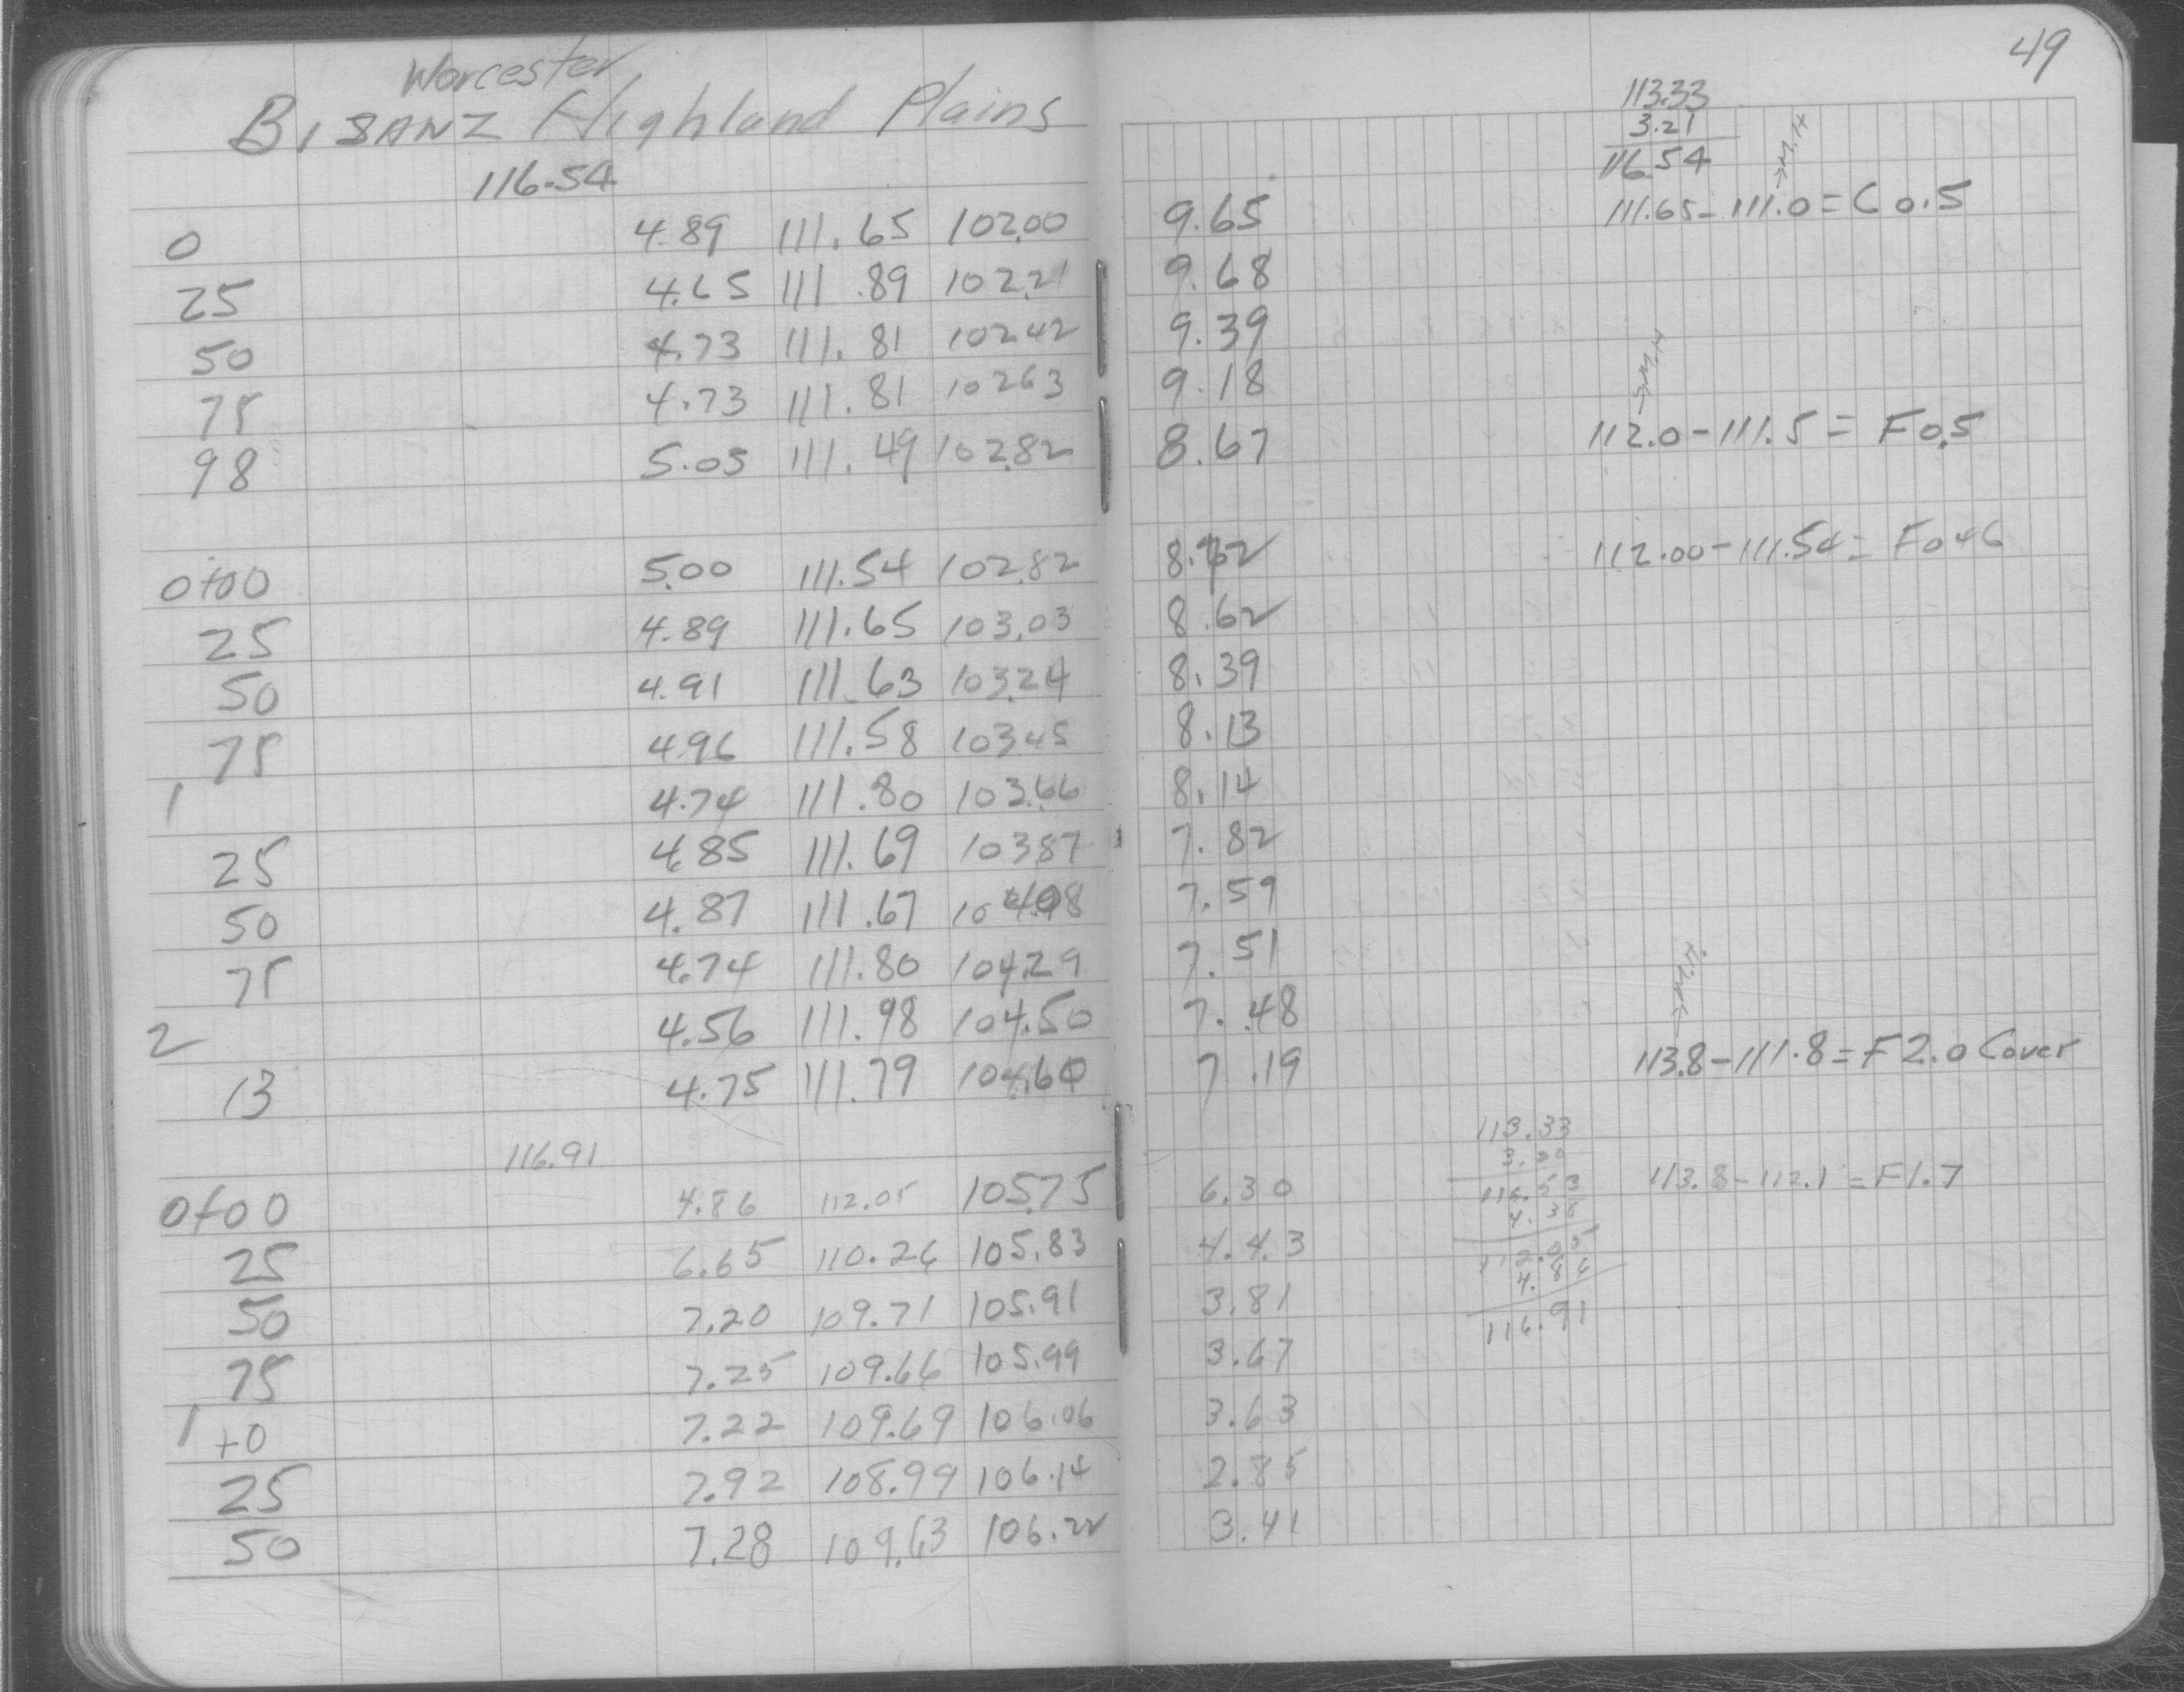 49
Worcester
BISANZ Highland Plains
113.33
3.21
116.54
116.54
→M.H
0 4.89 111.65 102.00 9.65 111.65-111.0=C0.5
25 4.65 111.89 102.21 9.68
50 4.73 111.81 102.42 9.39
75 4.73 111.81 102.63 9.18
→M.H
98 5.05 111.49 102.82 8.67 112.0-111.5=F0.5
0+00 5.00 111.54 102.82 8.72 112.00-111.54=F0.46
25 4.89 111.65 103.03 8.62
50 4.91 111.63 103.24 8.39
75 4.96 111.58 103.45 8.13
1 4.74 111.80 103.66 8.14
25 4.85 111.69 103.87 7.82
50 4.87 111.67 104.08 7.59
75 4.74 111.80 104.29 7.51
→M.H.
2 4.56 111.98 104.50 7.48
13 4.75 111.79 104.60 7.19 113.8-111.8=F2.0 Cover
116.91
113.33
3.20
116.53
4.38
112.05
4.86
116.91
0+00 4.86 112.05 105.75 6.30 113.8-112.1=F1.7
25 6.65 110.26 105.83 4.43
50 7.20 109.71 105.91 3.81
75 7.25 109.66 105.99 3.67
1+0 7.22 109.69 106.06 3.63
25 7.92 108.99 106.14 2.85
50 7.28 109.63 106.22 3.41